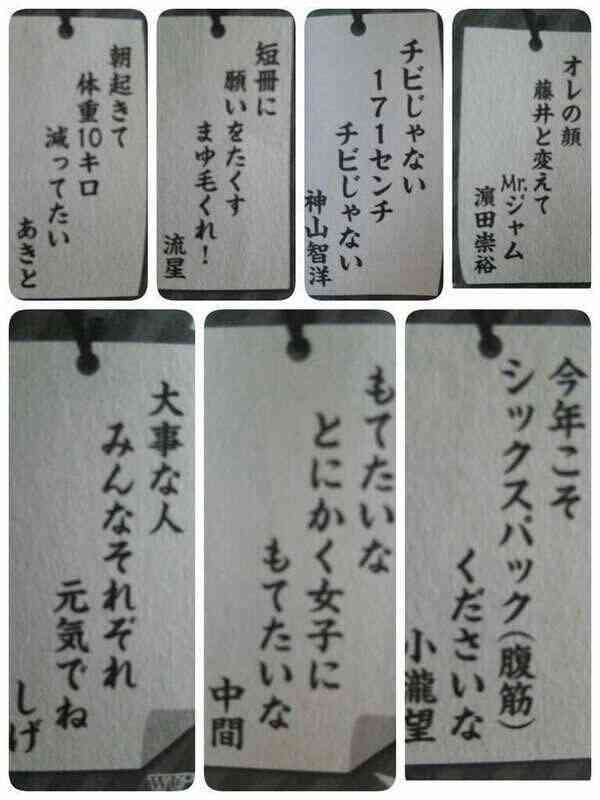 朝起きて
体重10キロ
減ってたい
あきと
短冊に
願いをたくす
まゆ毛くれ!
流星
チビじゃない
171センチ
チビじゃない
神山智洋
オレの顔
藤井と変えて
Mr.ジャム
濵田崇裕
大事な人
みんなそれぞれ
元気でね
しげ
もてたいな
とにかく女子に
もてたいな
中間
今年こそ
シックスパック(腹筋)
くださいな
小瀧望